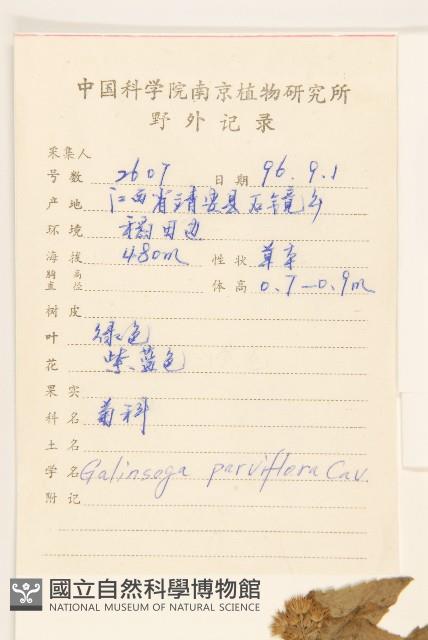 中国科学院南京植物研究所
野外记录
采集人
号数 2607 日期 96.9.1
产地 江西省靖安县石镜乡
环境 稻田边
海拔 480m 性状 草本
胸高直径 体高 0.7—0.9m
树皮
叶 绿色
花 紫蓝色
果实
科名 菊科
土名
学名 Galinsoga parviflora Cav.
附记
國立自然科學博物館
NATIONAL MUSEUM OF NATURAL SCIENCE